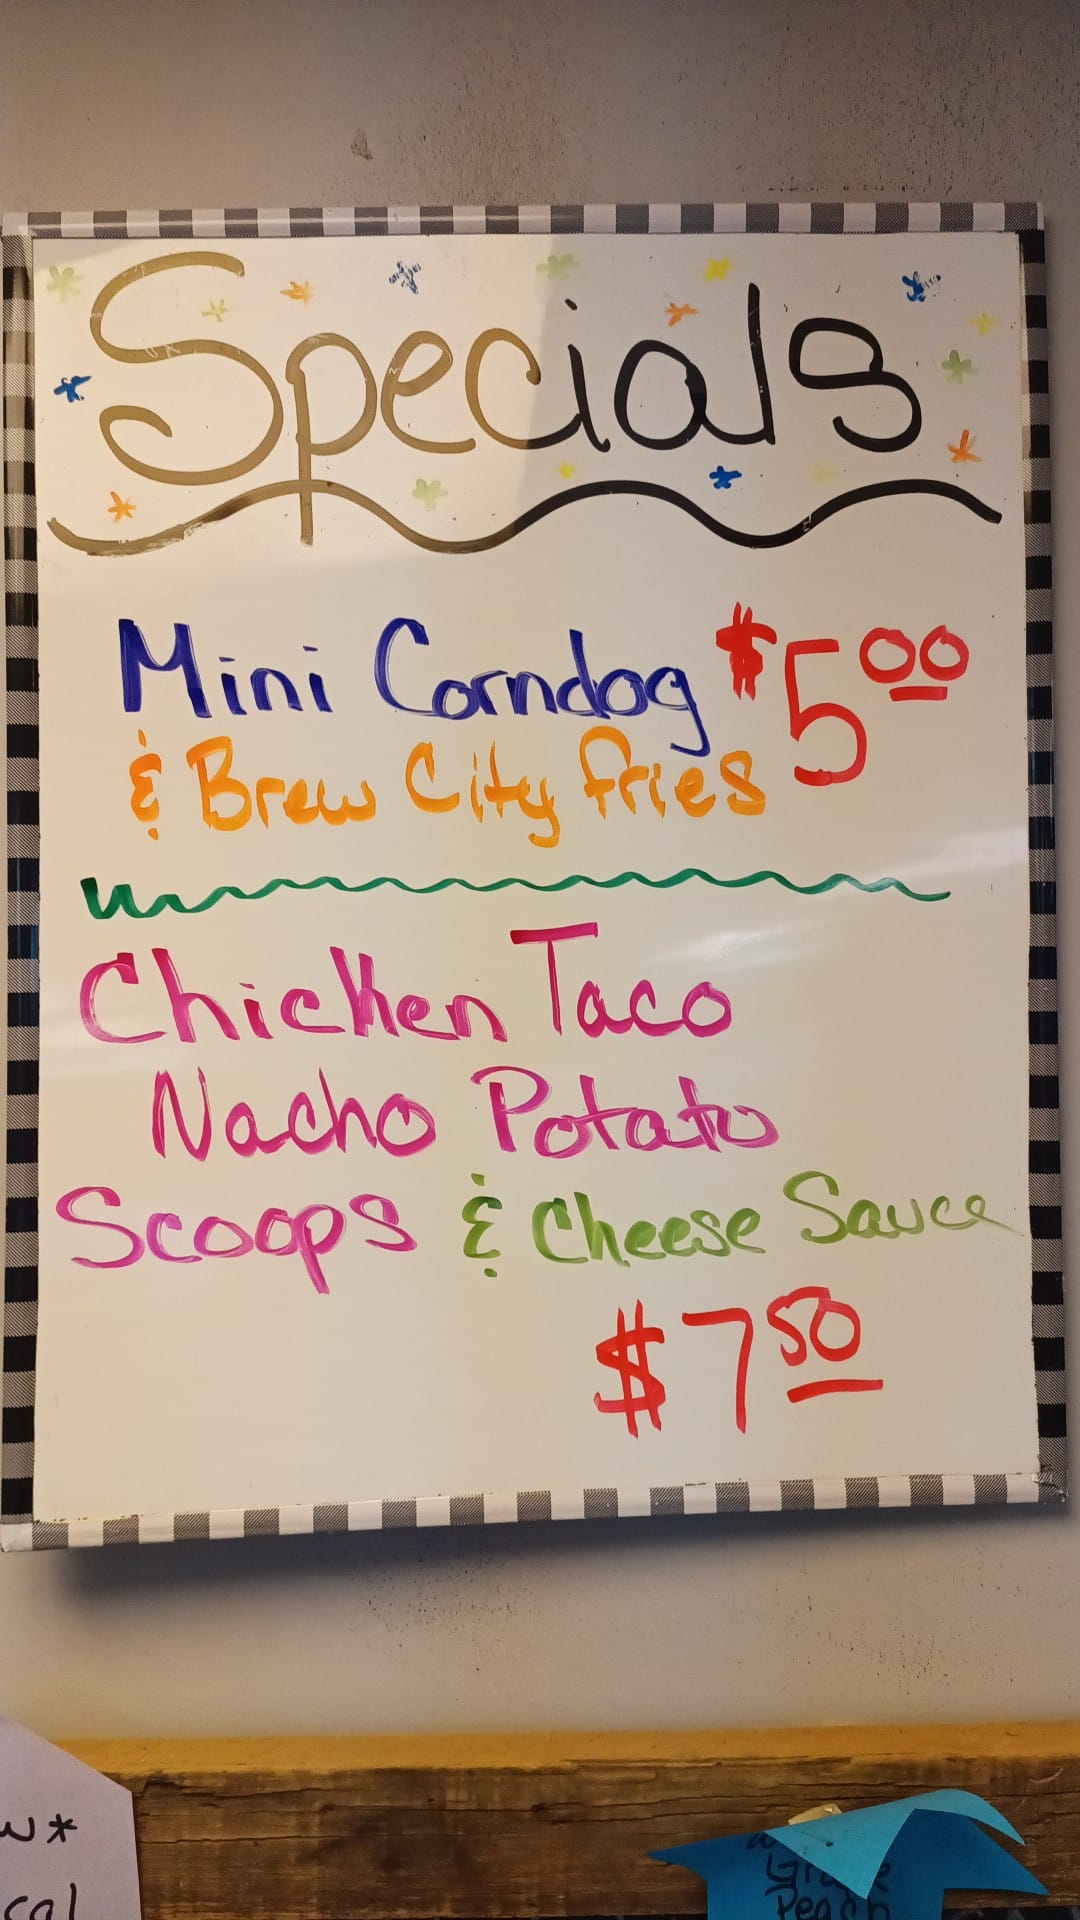 Specials
Mini Corndog $5.00
& Brew City fries
Chicken Taco
Nacho Potato
Scoops & Cheese Sauce
$7.50
Peach